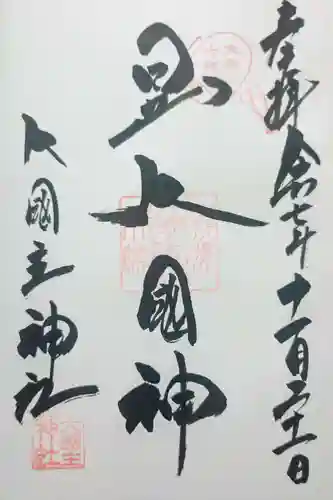 奉拝 令和七年十一月二十一日
日出大國神
大國主神社